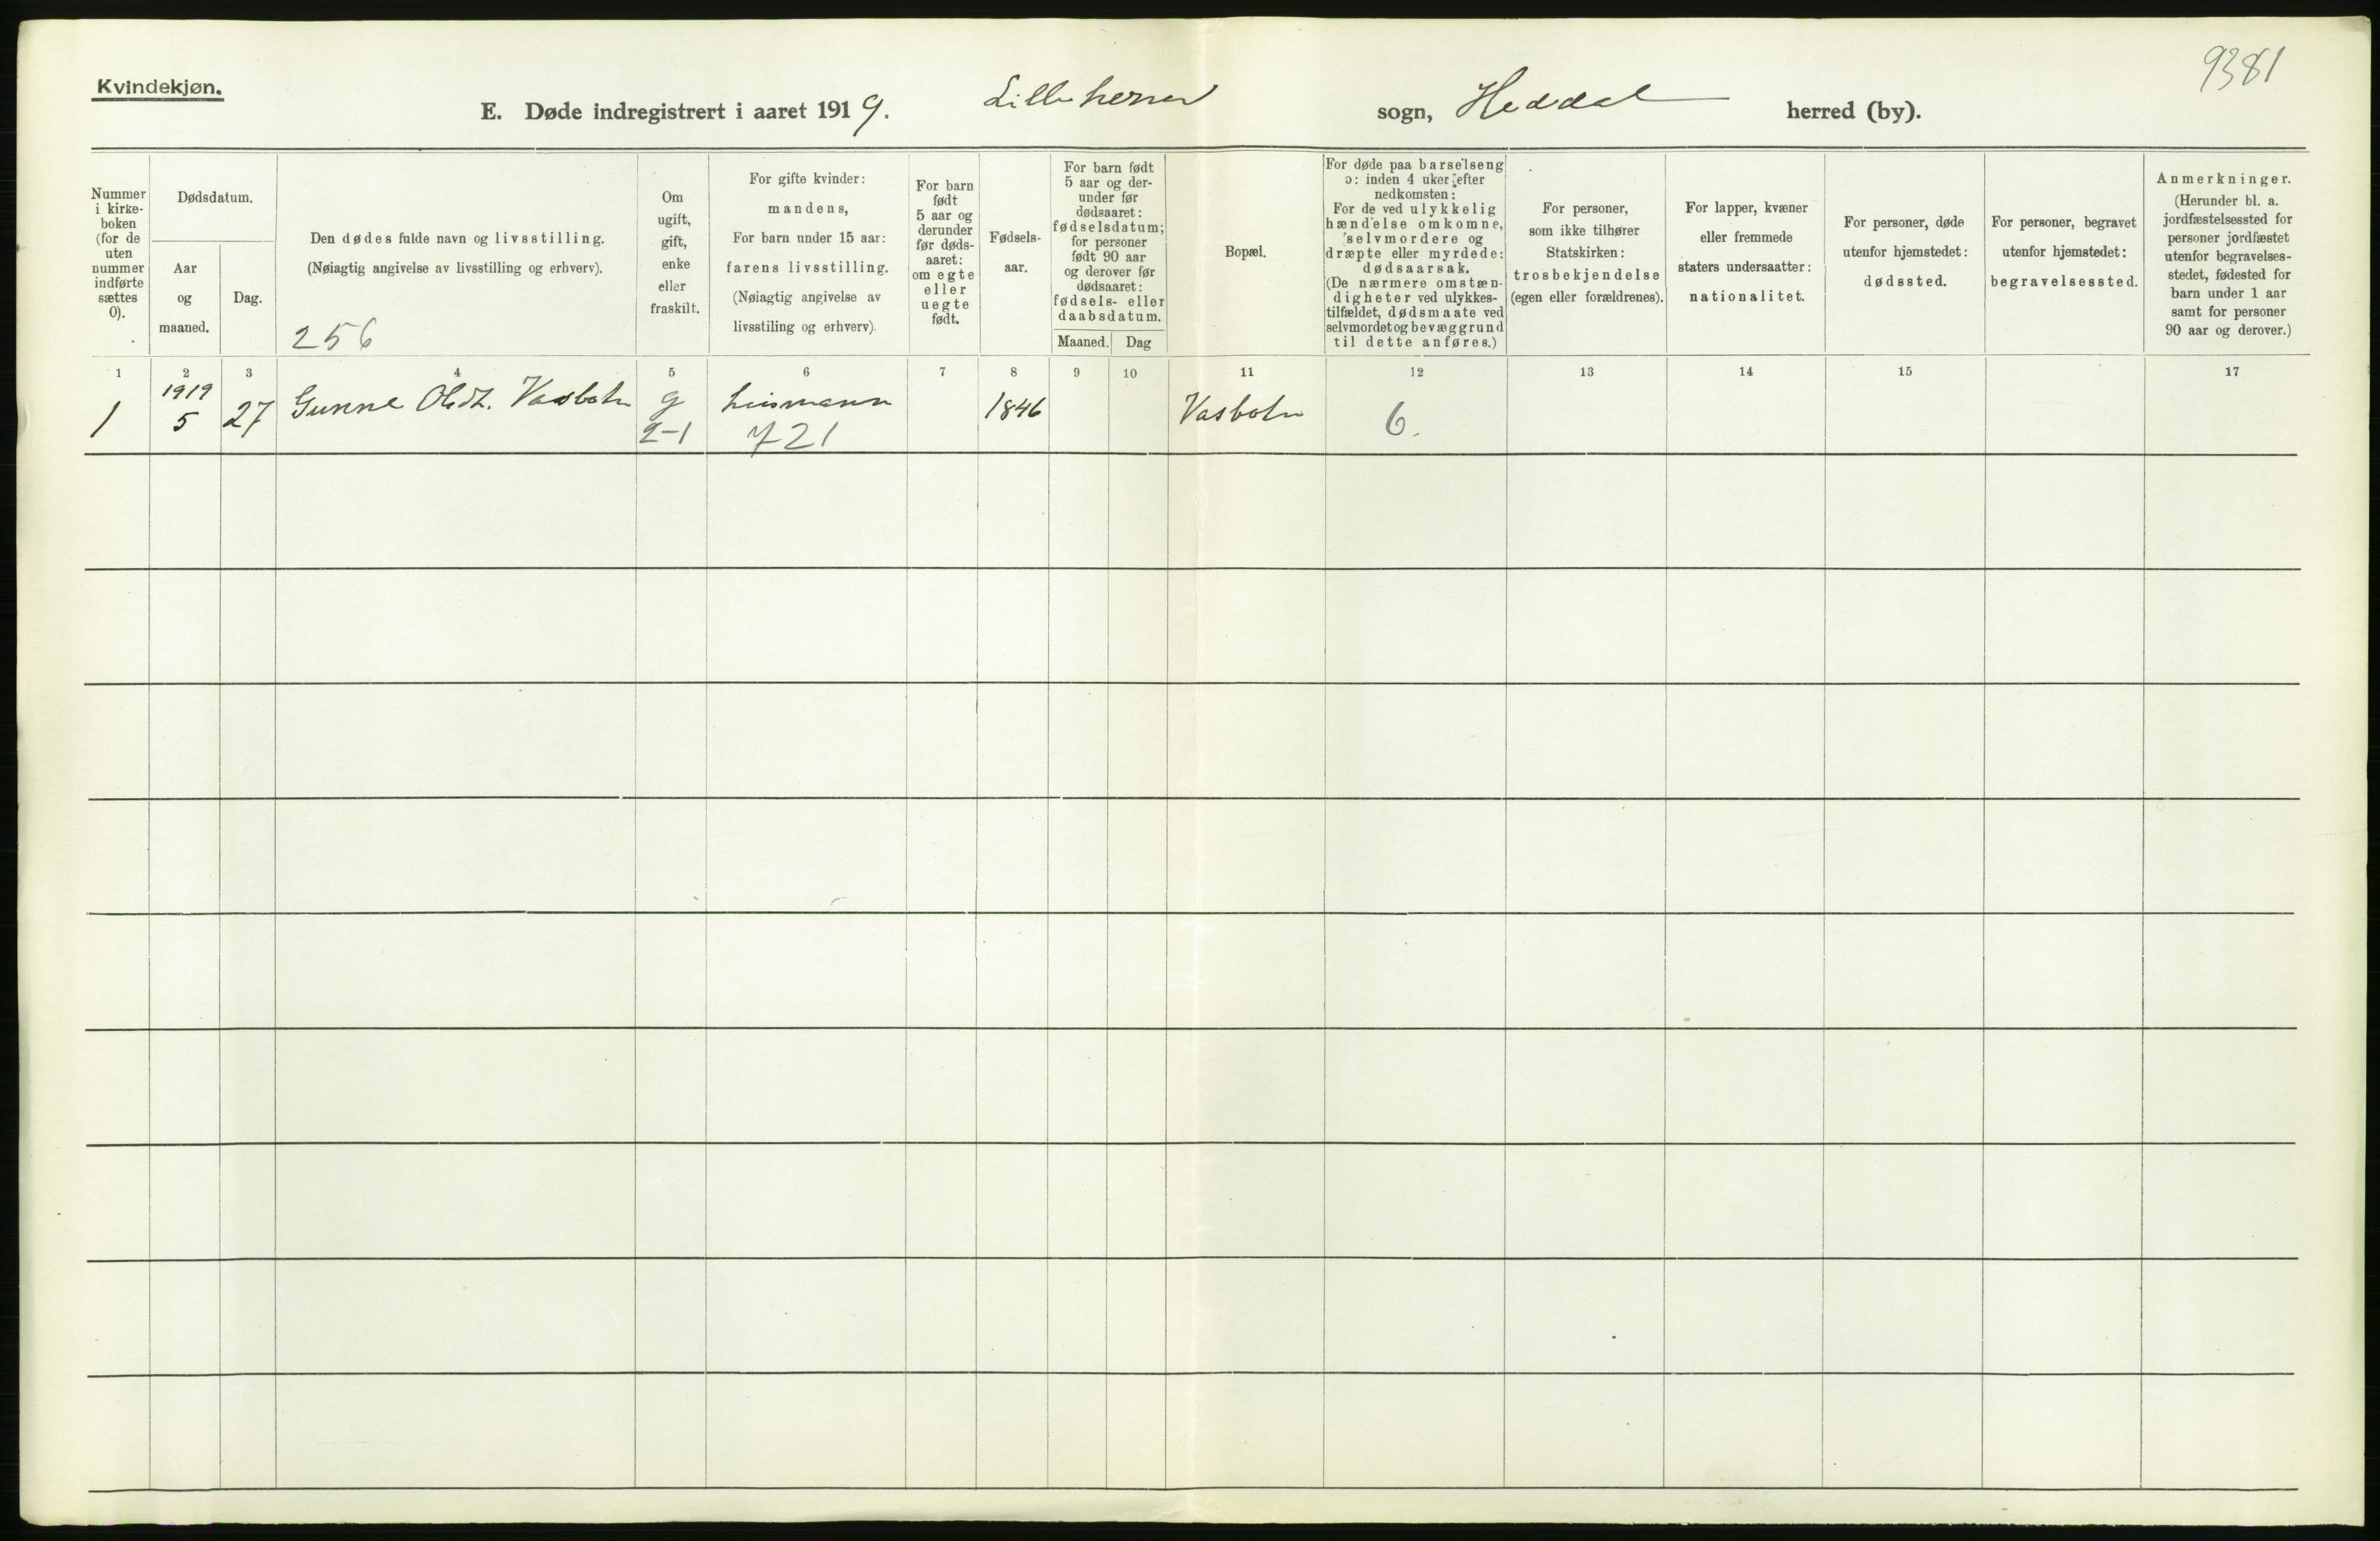 9381
Kvindekjøn.
E. Døde indregistrert i aaret 1919. Lilleherred sogn, Heddal herred (by).
Nummer i kirke-boken (for de uten nummer indførte sættes 0).
Dødsdatum.
Aar og maaned.
Dag.
Den dødes fulde navn og livsstilling.
(Nøiagtig angivelse av livsstilling og erhverv).
256
Om ugift, gift, enke eller fraskilt.
For gifte kvinder:
mandens,
For barn under 15 aar:
farens livsstilling.
(Nøiagtig angivelse av
livsstiling og erhverv).
For barn født 5 aar og derunder før døds-aaret: om egte eller uegte født.
Fødsels-aar.
For barn født
5 aar og der-
under før
dødsaaret:
fødselsdatum;
for personer
født 90 aar
og derover før
dødsaaret:
fødsels- eller
daabsdatum.
Maaned. Dag
Bopæl.
For døde paa barselseng
ɔ: inden 4 uker efter
nedkomsten:
For de ved ulykkelig
hændelse omkomne,
selvmordere og
dræpte eller myrdede:
dødsaarsak.
(De nærmere omstæn-
digheter ved ulykkes-
tilfældet, dødsmaate ved
selvmordet og bevæggrund
til dette anføres.)
For personer,
som ikke tilhører
Statskirken:
trosbekjendelse
(egen eller forældrenes).
For lapper, kvæner
eller fremmede
staters undersaatter:
nationalitet.
For personer, døde
utenfor hjemstedet:
dødssted.
For personer, begravet
utenfor hjemstedet:
begravelsessted.
Anmerkninger.
(Herunder bl. a.
jordfæstelsessted for
personer jordfæstet
utenfor begravelses-
stedet, fødested for
barn under 1 aar
samt for personer
90 aar og derover.)
1 2 3 4 5 6 7 8 9 10 11 12 13 14 15 17
1919
1 5 27 Gunne Olsdt. Vasbotn g Leismann 1846 Vasbotn 6.
2-1 721